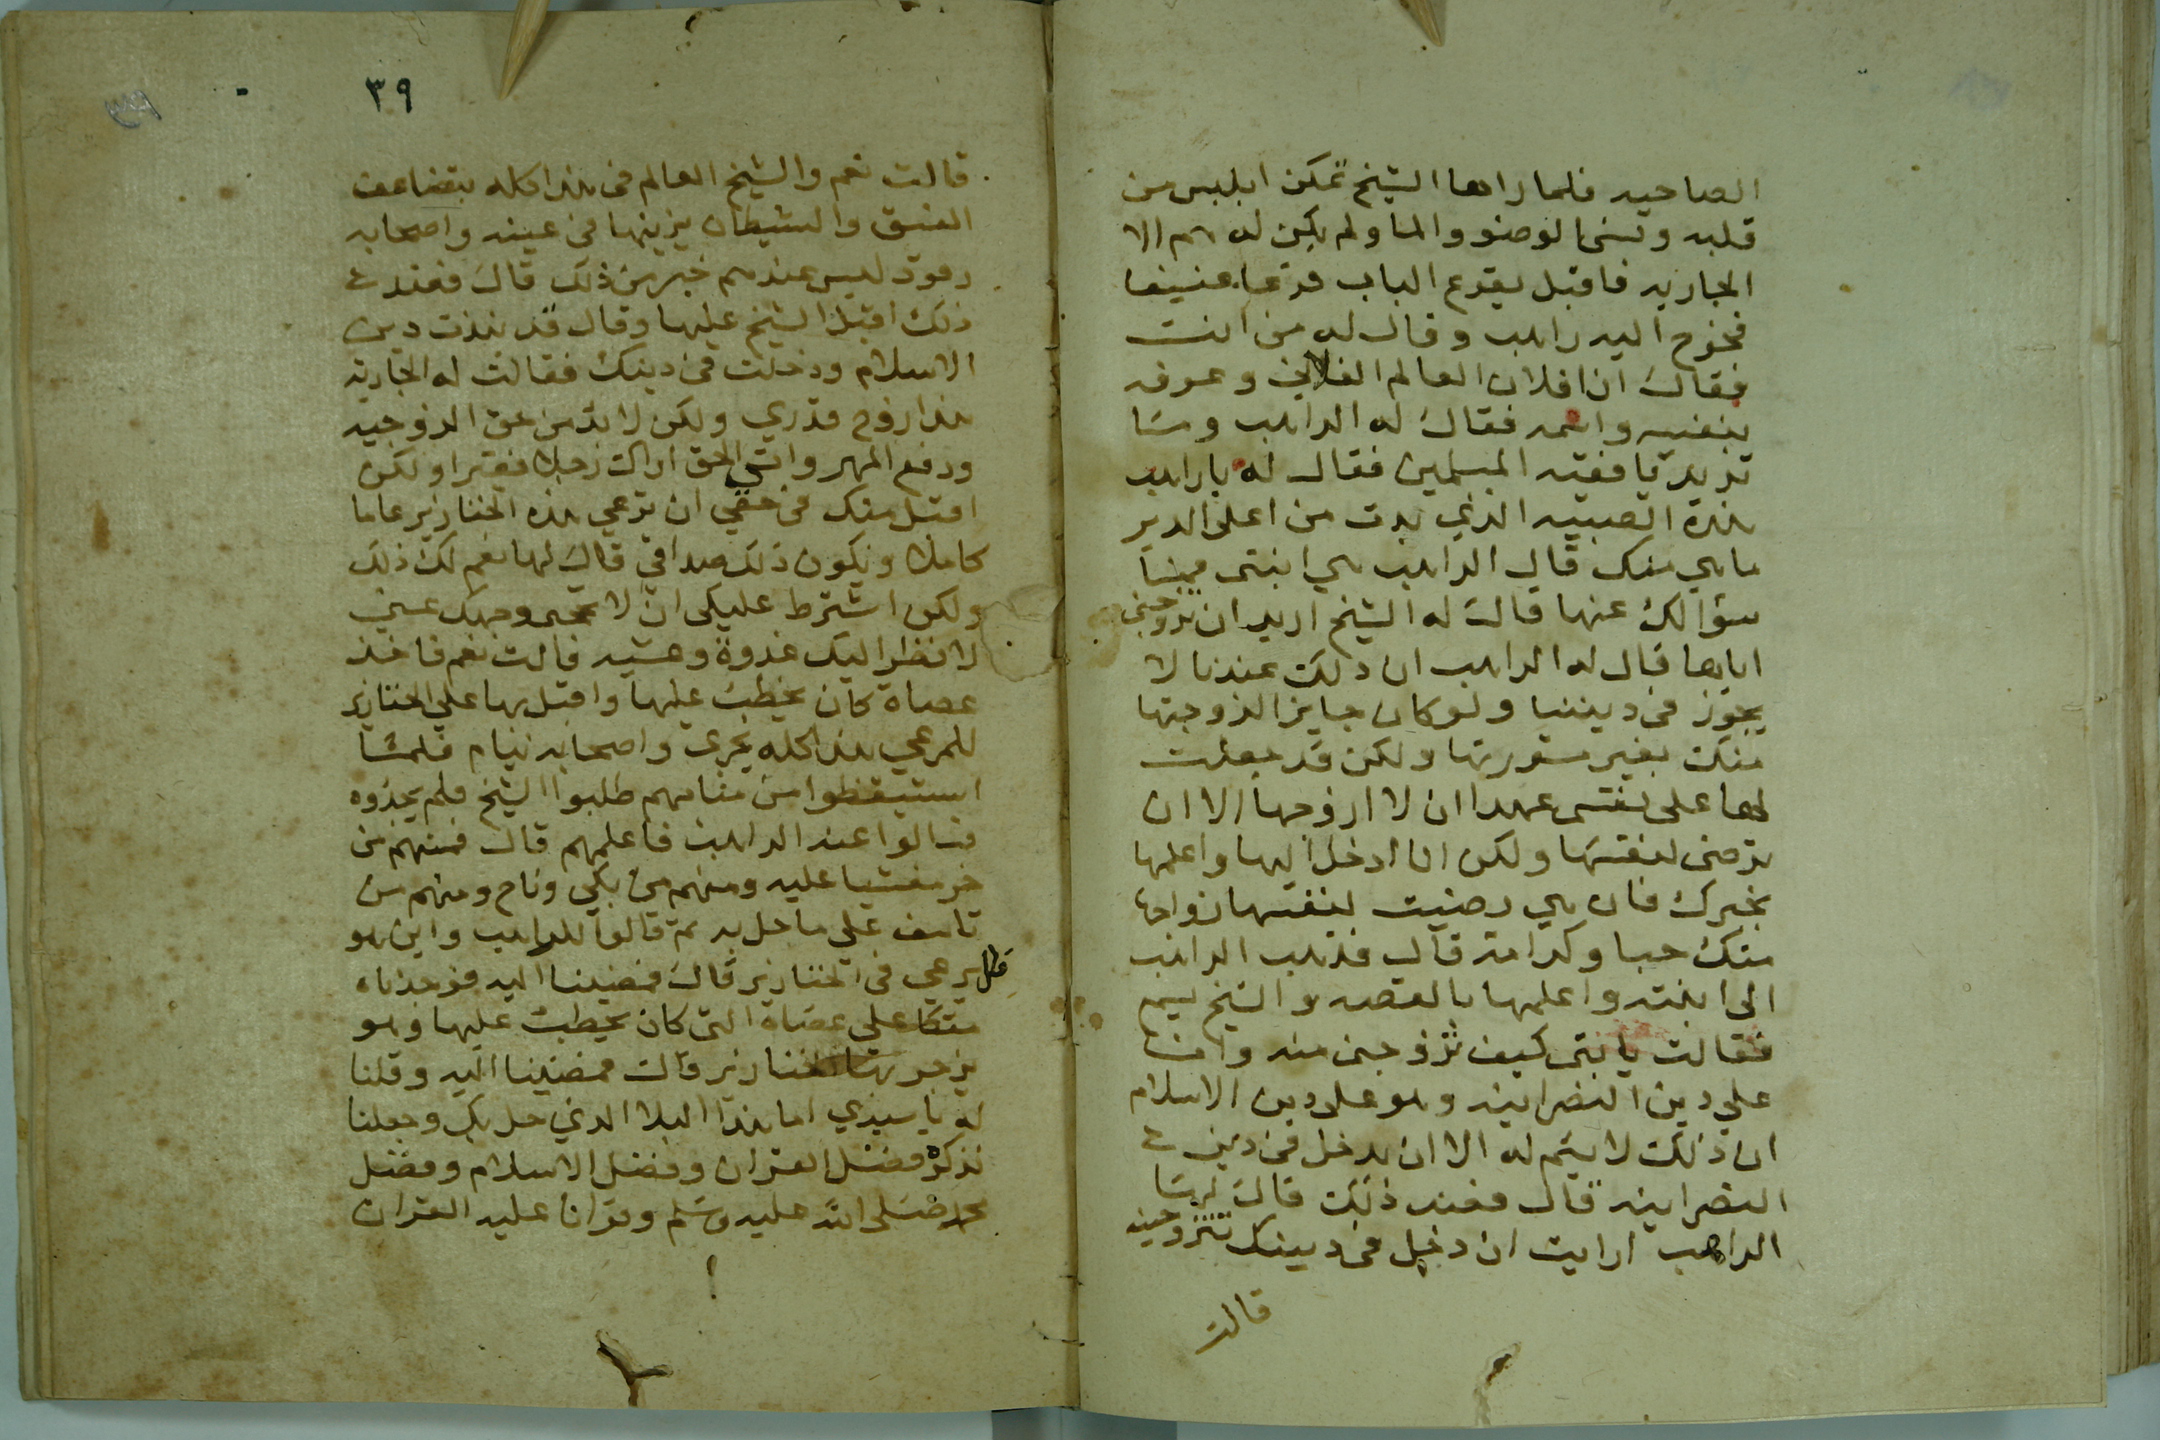 الصاحيه فلما راها الشيخ تمكن ابليس من
قلبه ونسى الوضو والما ولم يكن له هم الا
الجاريه فاقبل يقرع الباب قرعا عنيفا
فخرج اليه راهب وقال له من انت
فقال انا فلان العالم الفلاني وعرفه
بنفسه واسمه فقال له الراهب وما
تريد يا فقيه المسلمين فقال له يا راهب
هذه الصبيه الذي بدت من اعلى الدير
ما هي منك قال الراهب هي ابنتى فما
سؤالك عنها قال له الشيخ اريد ان تزوجنى
اياها قال له الراهب ان ذلك عندنا لا
يجوز فى ديننا ولو كان جايز الزوجتها
منك بغير مشورتها ولكن قد جعلت
لها على نفسى عهدا ان لا ازوجها الا ان
ترضى لنفسها ولكن انا ادخل اليها واعلمها
بخبرك فان هي رضيت لنفسها زواجها
منك حبا وكرامة قال فذهب الراهب
الى ابنته واعلمها بالقصه والشيخ يسمع
فقالت يا ابتى كيف تزوجنى منه وانا
على دين النصرانيه وهو على دين الاسلام
ان ذلك لا يتم له الا ان يدخل فى دين
النصرانيه قال فعند ذلك قال لها
الراهب ارايت ان دخل فى دينك تتزوجينه
قالت
٣٩
قالت نعم والشيخ العالم فى هذا كله يتضاعف
العشق والشيطان يزينها فى عينه واصحابه
رقود ليس عندهم خبر من ذلك قال فعند
ذلك اقبل الشيخ عليها وقال قد نبذت دين
الاسلام ودخلت فى دينك فقالت له الجاريه
هذا زوج قدري ولكن لا بد من حق الزوجيه
ودفع المهر واين الحق اراك رجلا فقيرا ولكن
اقبل منك فى حقي ان ترعي هذه الخنازير عاما
كاملا ويكون ذلك صداقي قال لها نعم لك ذلك
ولكن اشترط عليكى ان لا تحجبى وجهك عني
لا نظر اليك غدوة وعشيه قالت نعم فاخذ
عصاة كان يخطب عليها واقبل بها على الخنازير
للمرعي هذا كله يجرى واصحابه نيام فلما
استيقظوا من منامهم طلبوا الشيخ فلم يجدوه
فسالوا عند الراهب فاعلمهم قال فمنهم من
خر مغشيا عليه ومنهم من بكي وناح ومنهم من
تاسف على ما حل به ثم قالوا للراهب واين هو
قال يرعي فى الخنازير قال فمضينا اليه فوجدناه
متكا على عصاة التى كان يخطب عليها وهو
يزجر بها الخنازير قال فمضينا اليه وقلنا
له يا سيدي اما هذا البلا الذي حل بك وجعلنا
نذكره فضل القران وفضل الاسلام وفضل
محمد صلى الله عليه وسلم وقرانا عليه القران